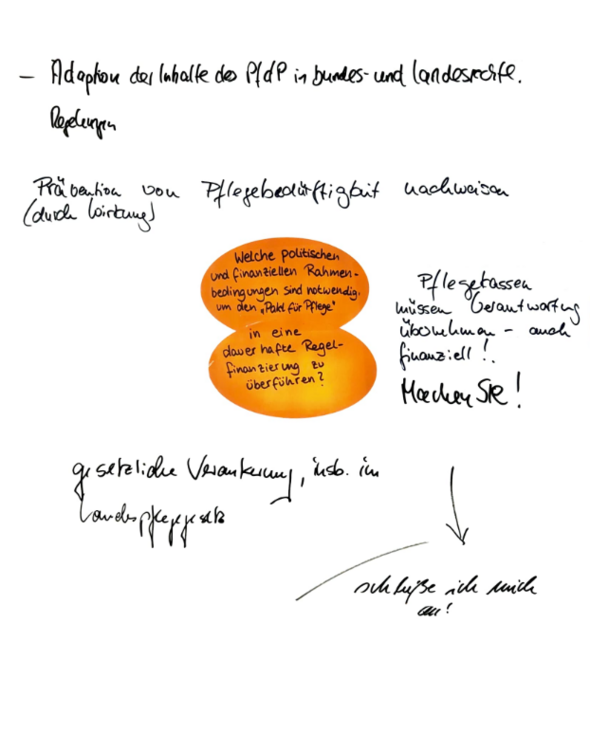 - Adaption der Inhalte des PfdP in bundes- und landesrechtl.
Regelungen
Prävention von Pflegebedürftigkeit nachweisen
(durch Wirkung)
Welche politischen
und finanziellen Rahmen-
bedingungen sind notwendig,
um den „Pakt für Pflege"
in eine
dauerhafte Regel-
finanzierung zu
überführen?
Pflegekassen
müssen Verantwortung
übernehmen - auch
finanziell!
Machen Sie!
gesetzliche Verankerung, insb. im
Landespflegegesetz
schließe ich mich
an!